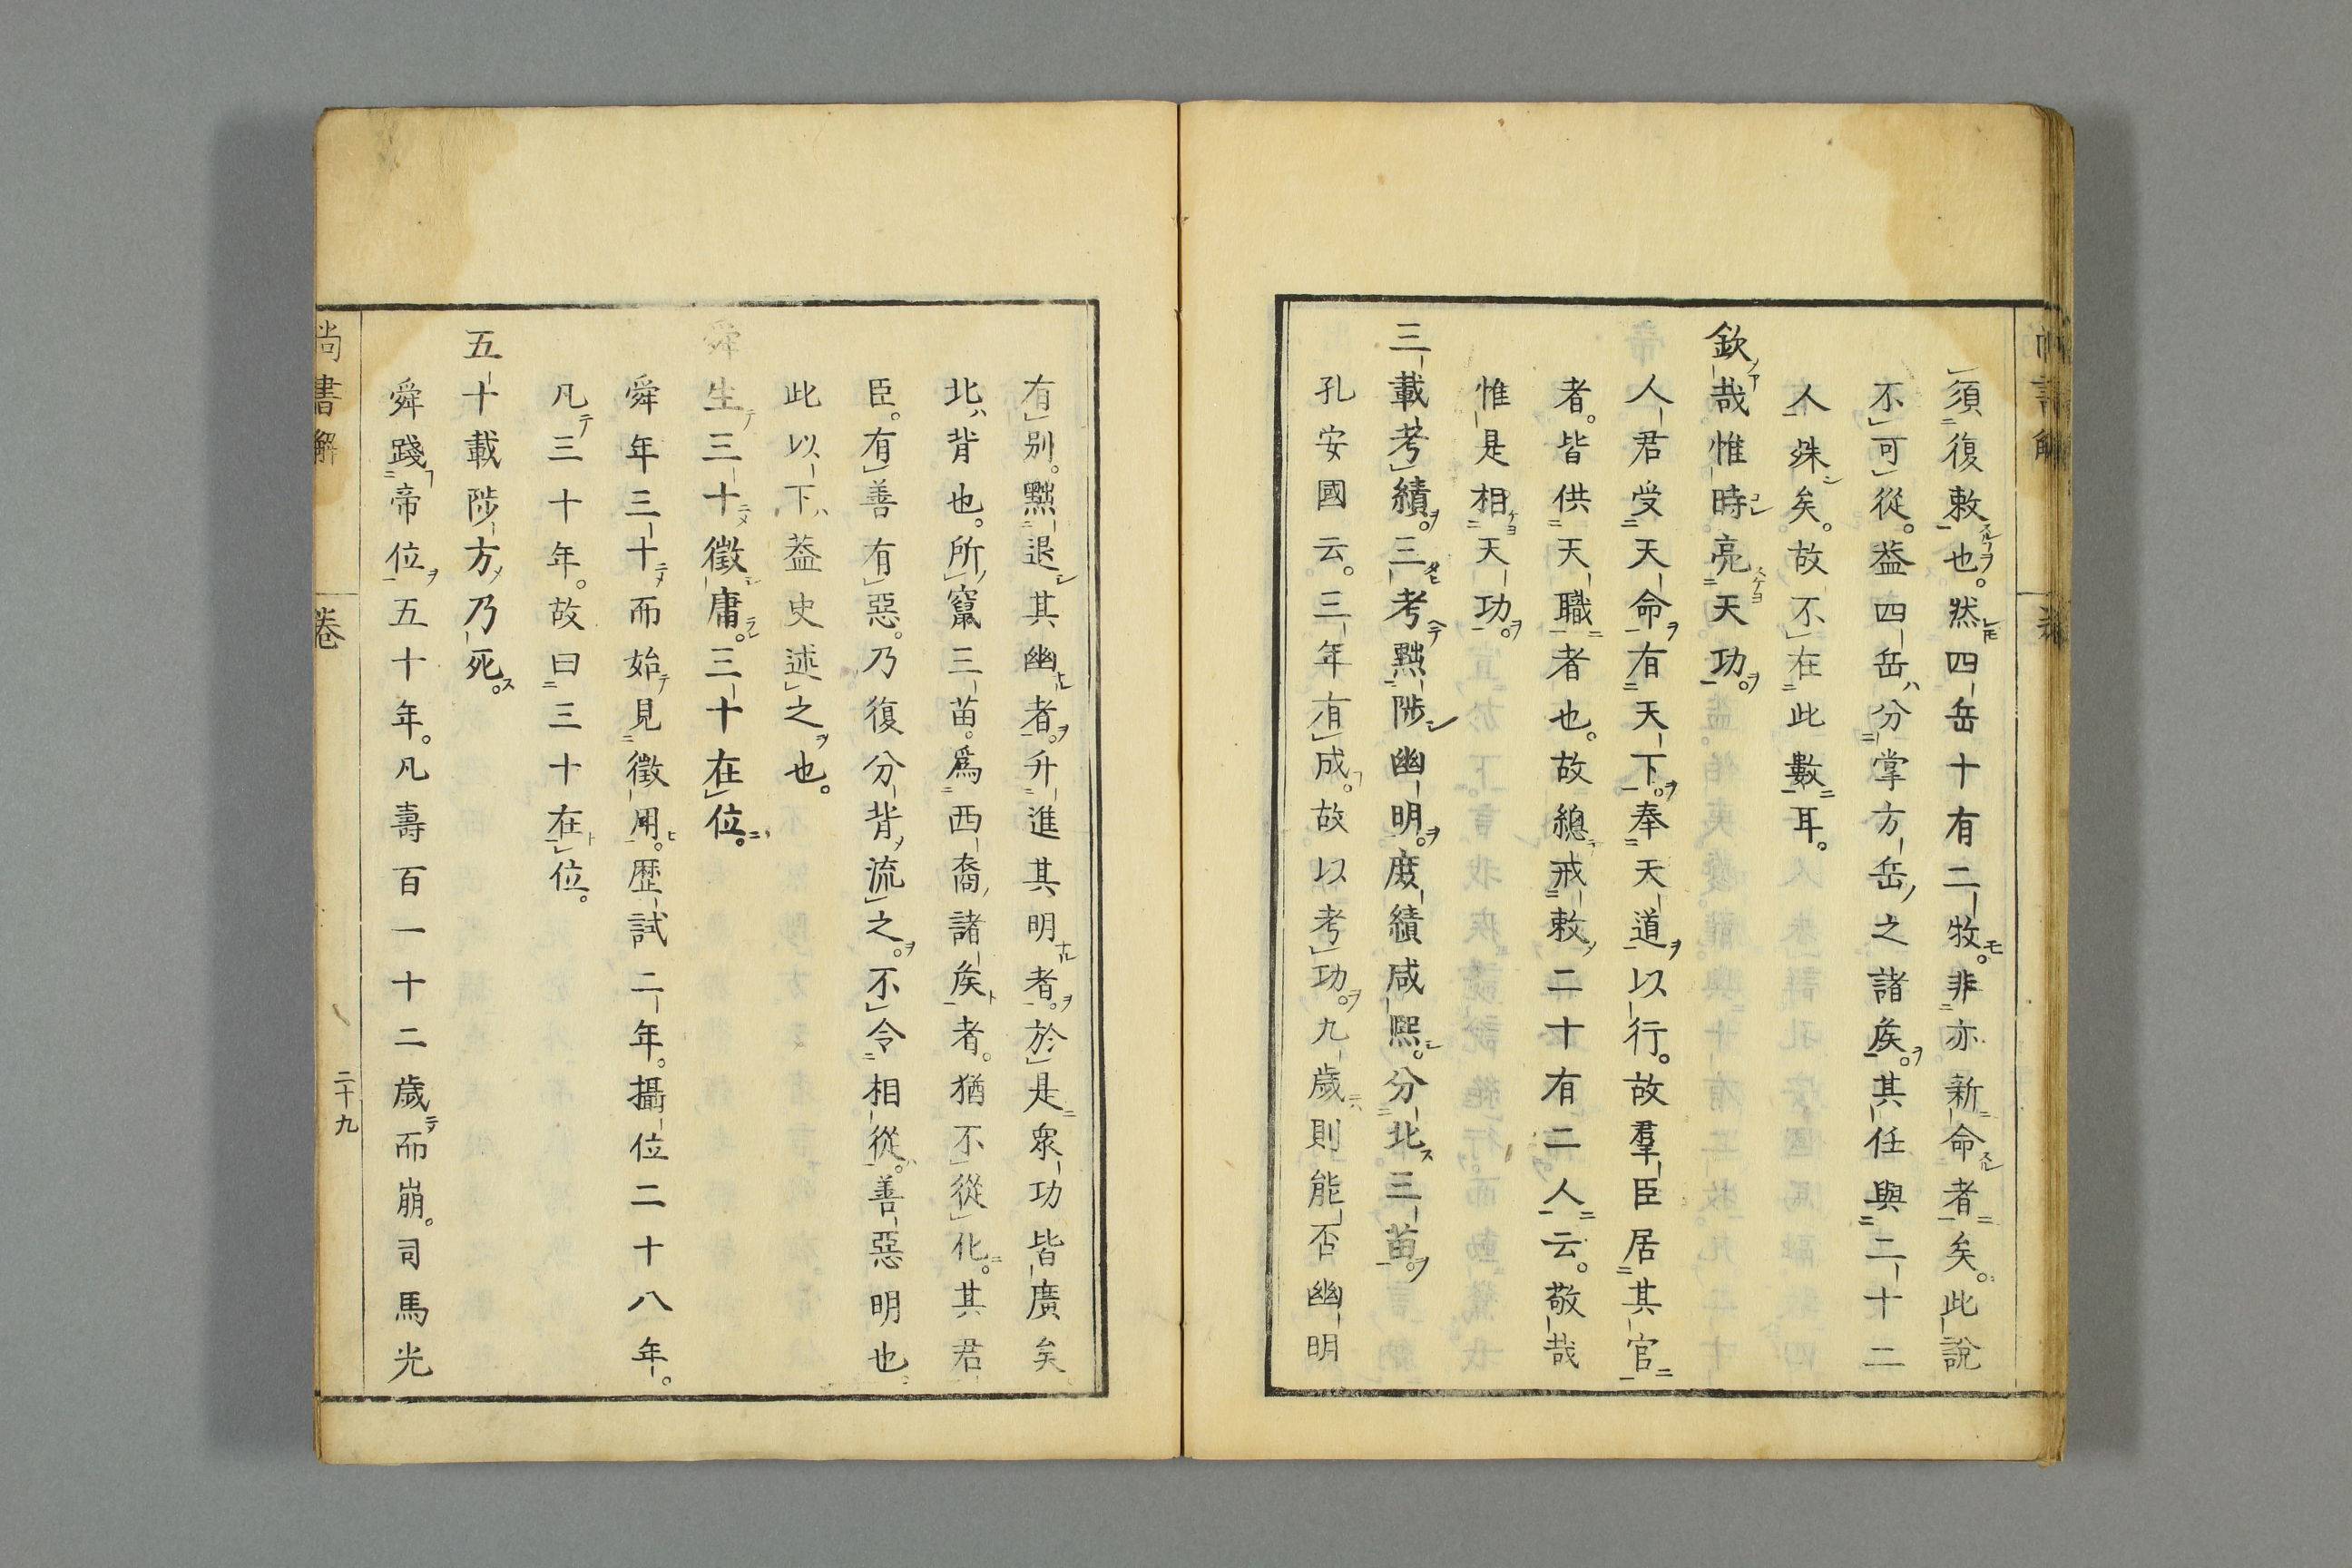 須復敕也。然四岳十有二牧。非亦新命者矣。此說
不可從。蓋四岳分掌方岳之諸矦。其任與二十二
人殊矣。故不在此數耳。
欽哉惟時亮天功。
人君受天命有天下。奉天道以行。故羣臣居其官
者。皆供天職者也。故總戒敕二十有二人云。敬哉
惟是相天功。
三載考績。三考黜陟幽明。庶績咸熙。分北三苗。
孔安國云。三年有成。故以考功。九歲則能否幽明
有別。黜退其幽者。升進其明者。於是衆功皆廣矣
北背也。所竄三苗。爲西裔諸矦者。猶不從化。其君
臣。有善有惡。乃復分背流之。不令相從。善惡明也
此以下蓋史述之也。
舜生三十徵庸。三十在位。
舜年三十而始見徵用。歷試二年。攝位二十八年。
凡三十年。故曰三十在位。
五十載陟方乃死。
舜踐帝位五十年。凡壽百一十二歲而崩。司馬光
尚書解 卷 二十九